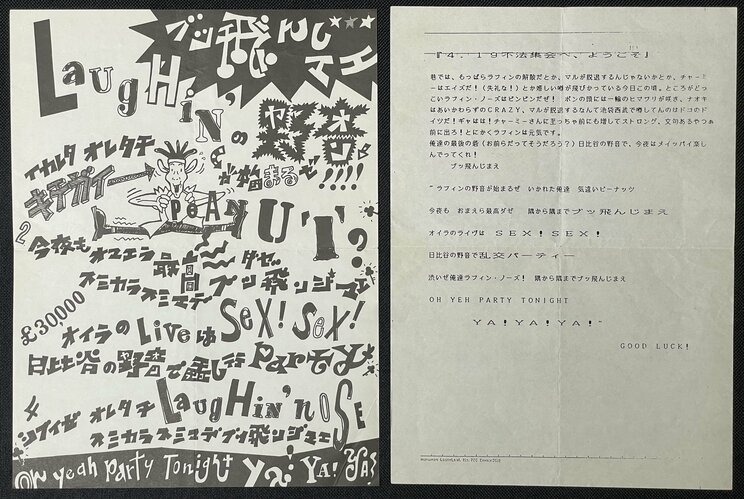 ブッ飛んじマエ
LaugHiN'の野音が
始まるぜ!!!!
イカレタ オレタチ
キチガイ
PeANUT'T?
今夜も オマエラ 最高ダゼ
スミカラスミマデ ブッ飛ンジマエ
£30,000
オイラのLiveは SeX! SeX!
日比谷の野音で乱行 PaRTY
シブイゼ オレタチ LaugHiN'nOSE
スミカラスミマデブッ飛ンジマエ
OH yeah Party Tonight Ya! YA! YA!
『4.19不法集会へ、ようこそ』
巷では、もっぱらラフィンの解散だとか、マルが脱退するんじゃないかとか、チャーミ
ーはエイズだ!(失礼な!)とか嬉しい噂が飛びかっている今日この頃。ところがどっ
こいラフィン・ノーズはビンビンだぜ! ポンの頭には一輪のヒマワリが咲き、ナオキ
はあいかわらずのCRAZY、マルが脱退するなんて池袋西武で噂してんのはドコのド
イツだ!ギャはは!チャーミーさんに至っちゃ前にも増してストロング、文句あるやつぁ
前に出ろ!とにかくラフィンは元気です。
俺達の最後の砦(お前らだってそうだろう?)日比谷の野音で、今夜はメイッパイ楽し
んでってくれ!
ブッ飛んじまえ
"ラフィンの野音が始まるぜ いかれた俺達 気違いピーナッツ
今夜も おまえら最高ダゼ 隅から隅までブッ飛んじまえ
オイラのライヴは SEX!SEX!
日比谷の野音で乱交パーティー
渋いぜ俺達ラフィン・ノーズ! 隅から隅までブッ飛んじまえ
OH YEH PARTY TONIGHT
YA!YA!YA!"
GOOD LUCK!